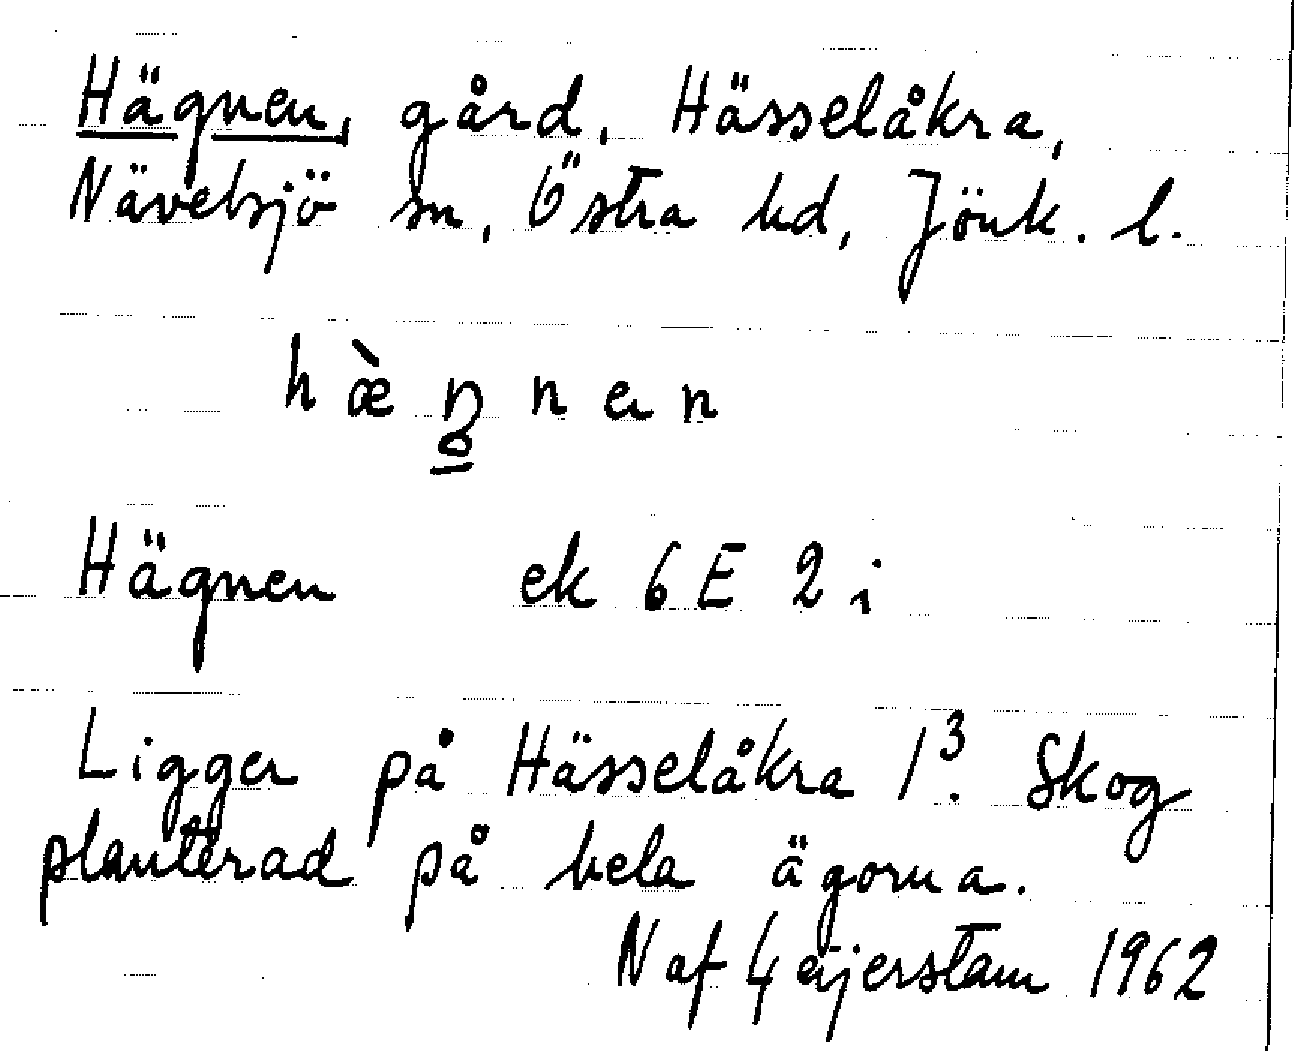 Hägnen, gård, Hässelåkra,
Nävelsjö sn, Östra hd, Jönk. l.
hæ̀ŋnən
Hägnen ek 6E 2i
Ligger på Hässelåkra 1³. Skog
planterad på hela ägorna.
N af Geijerstam 1962